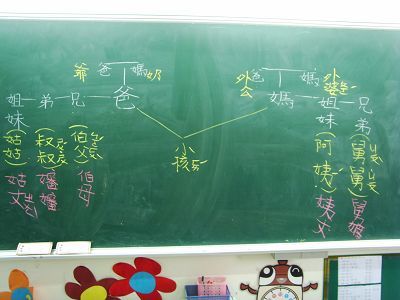 爺 爸 媽 奶
外公 爸 媽 外婆
姐妹 弟 兄 爸
媽 姐妹 兄弟
(姑姑) (叔叔) (伯父)
小孩
(阿姨) (舅舅)
姑丈 嬸嬸 伯母
姨丈 舅媽